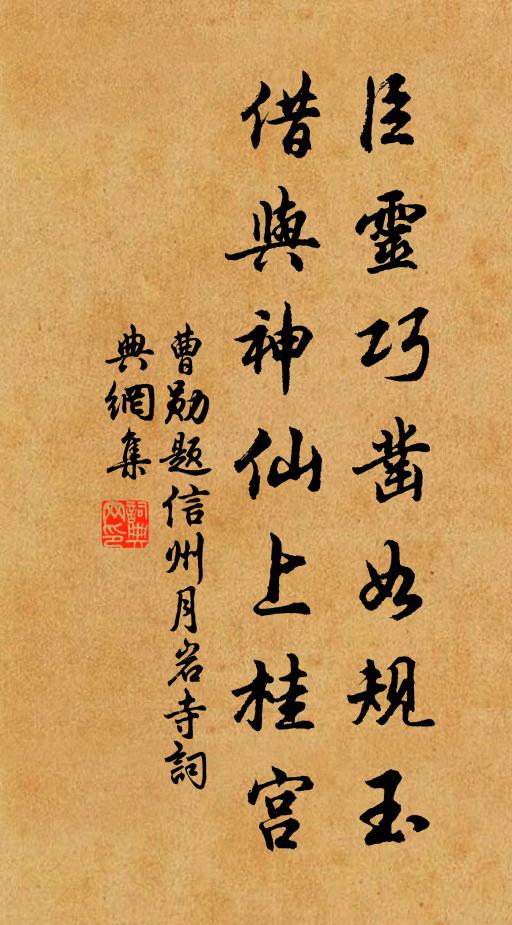 巨靈巧鑿如規玉
借與神仙上桂宮
曹勛題信州月岩寺詞
典網集
詞典
网印